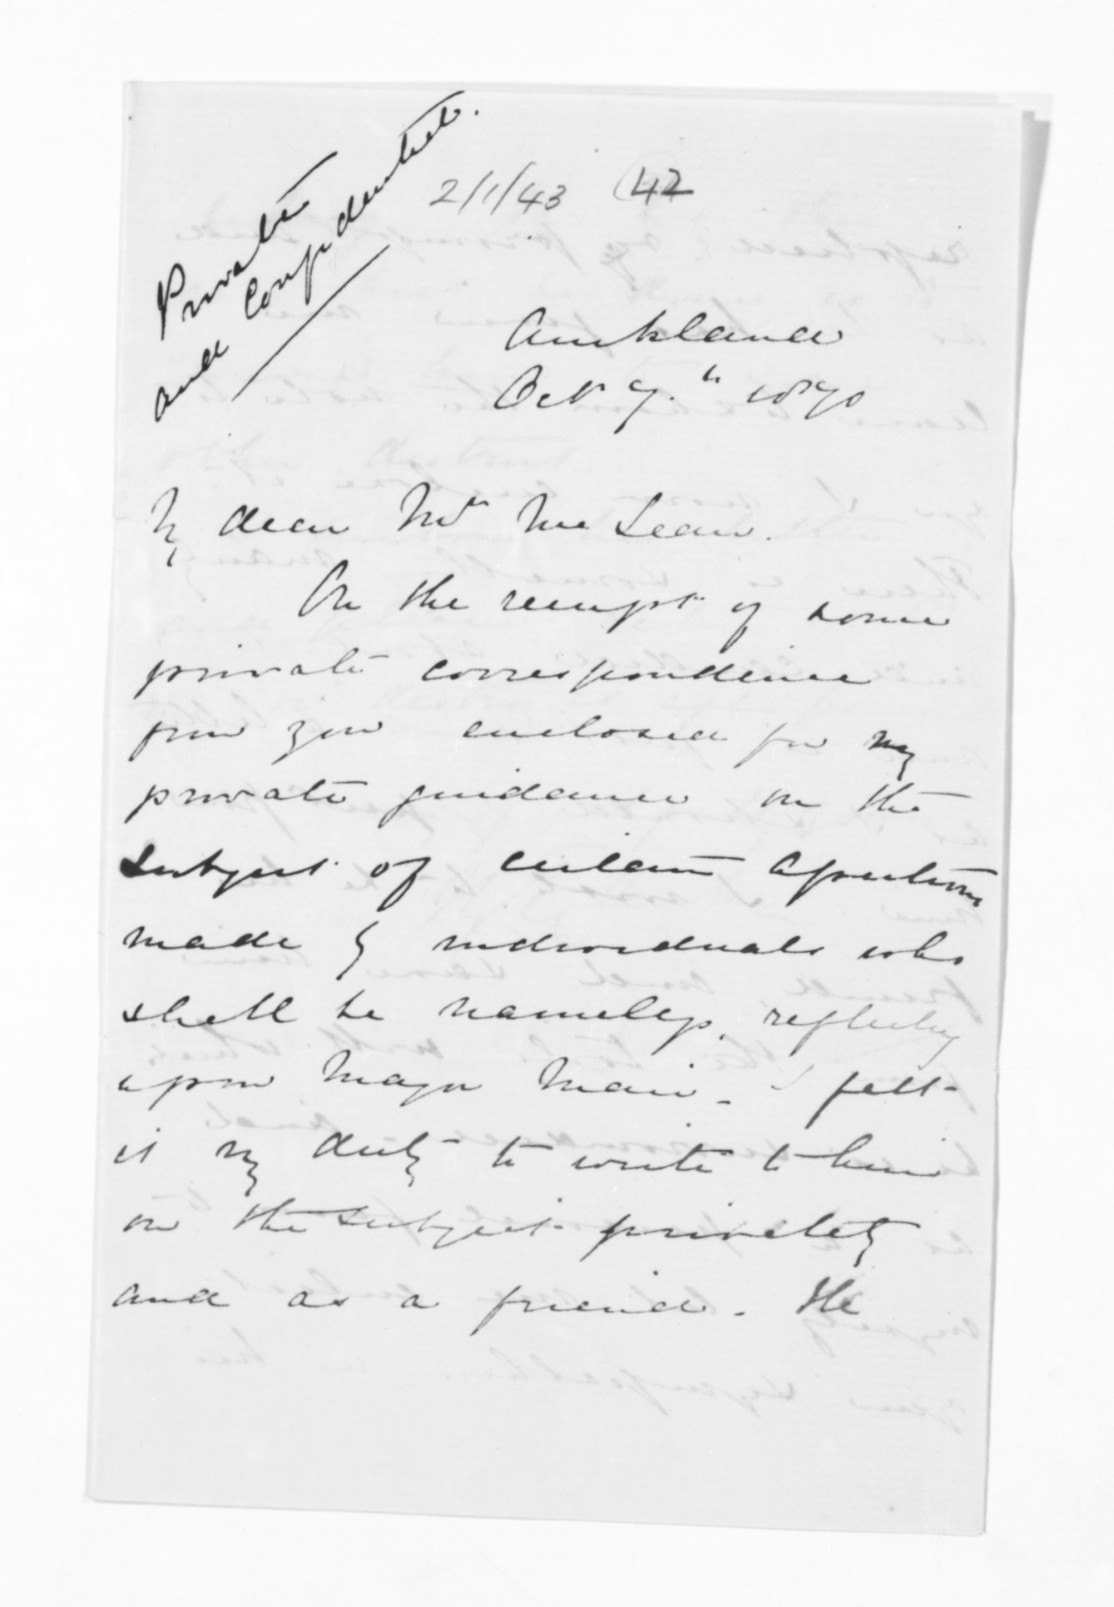 Private
and Confidential.
2/1/43 (42
Auckland
Oct 7.th 1870
My dear Mr McLean.
On the receipt of some
private correspondence
from you enclosed for my
private guidance on the
subject of certain assertions
made by individuals who
shall be nameless, reflecting
upon Major Mair - I felt
it my duty to write to him
on the subject privately
and as a friend. He